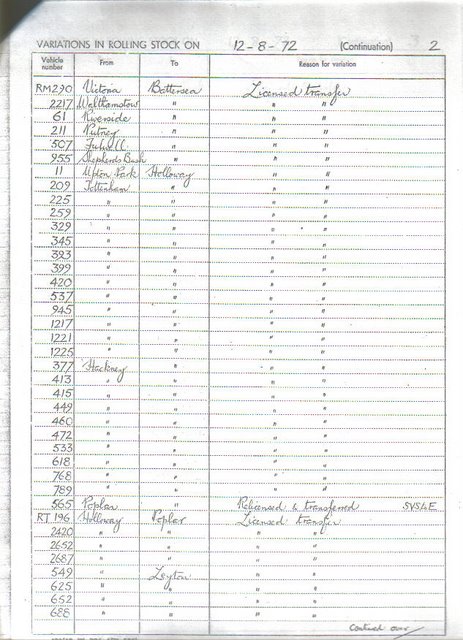 VARIATIONS IN ROLLING STOCK ON 12-8-72 (Continuation) 2
Vehicle number From To Reason for variation
RM290 Victoria Battersea Licensed transfer
2217 Walthamstow " " "
61 Riverside " " "
211 Putney " " "
507 Fulwell " " "
955 Shepherds Bush " " "
11 Upton Park Holloway " "
209 Tottenham " " "
225 " " " "
259 " " " "
329 " " " "
345 " " " "
393 " " " "
399 " " " "
420 " " " "
537 " " " "
945 " " " "
1217 " " " "
1221 " " " "
1225 " " " "
377 Hackney " " "
413 " " " "
415 " " " "
449 " " " "
460 " " " "
472 " " " "
533 " " " "
618 " " " "
768 " " " "
789 " " " "
565 Poplar " Relicensed & transferred SVS4E
RT 196 Holloway Poplar Licensed transfer
2420 " " " "
2652 " " " "
2687 " " " "
549 " Leyton " "
625 " " " "
652 " " " "
688 " " " "
Continued over